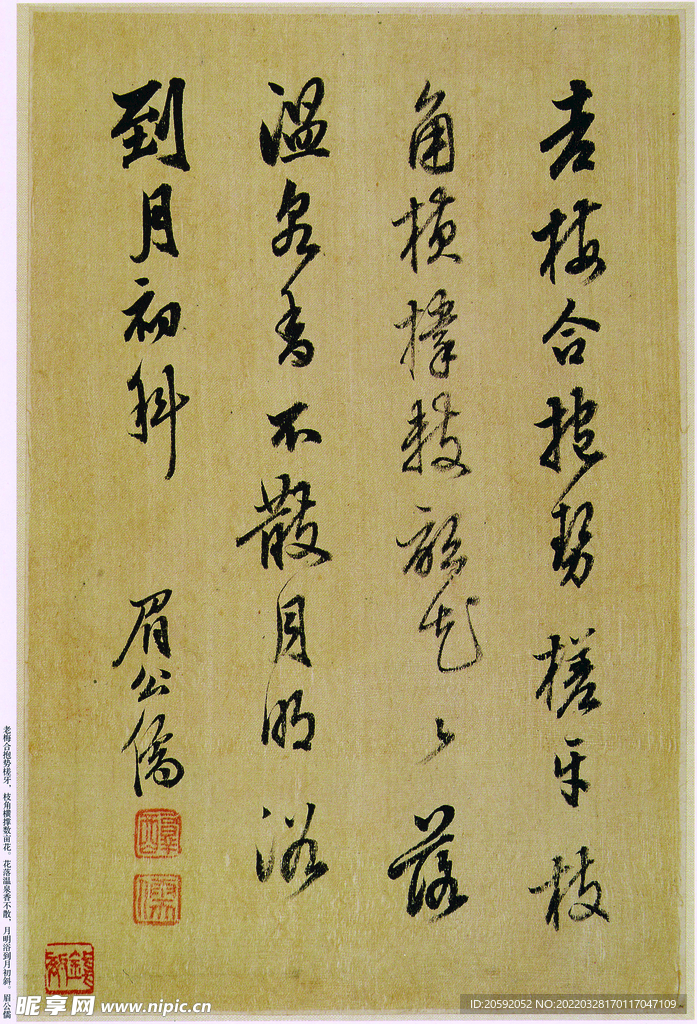 老梅合抱势槎牙枝
角横撑数亩花〻落
温泉香不散月明浴
到月初斜
眉公儒
醇儒
老梅合抱势槎牙，枝角横撑数亩花。花落温泉香不散，月明浴到月初斜。眉公儒
昵享网 www.nipic.cn
ID:20592052 NO:20220328170117047109